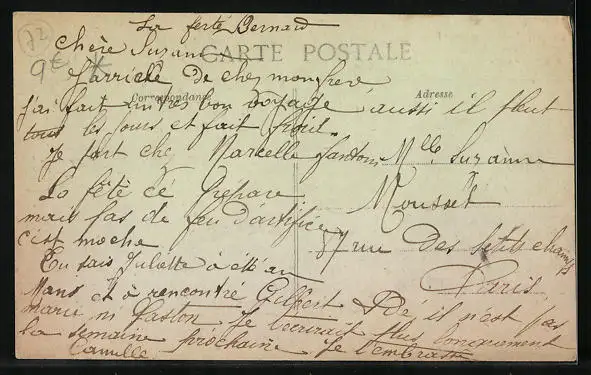 72
9€
La ferté Bernard
CARTE POSTALE
Chère Suzanne
J'arrive de chez mon frère
Correspondance
Adresse
j'ai fait un tres bon voyage, aussi il pleut
tous les jours et fait froid.
Je part chez Marcelle
Mlle Suzanne
La fête cé prépare
Mousset
mais pas de feu d'artifice
c'est moche
87 rue Des Petits champs
Tu sais Juliette à été au
Paris
Mans et à rencontré Gilbert Dé il n'est pas
marié ni Gaston Je t'ecrirait plus longuement
la semaine prochaine Je t'embrasse
Camille